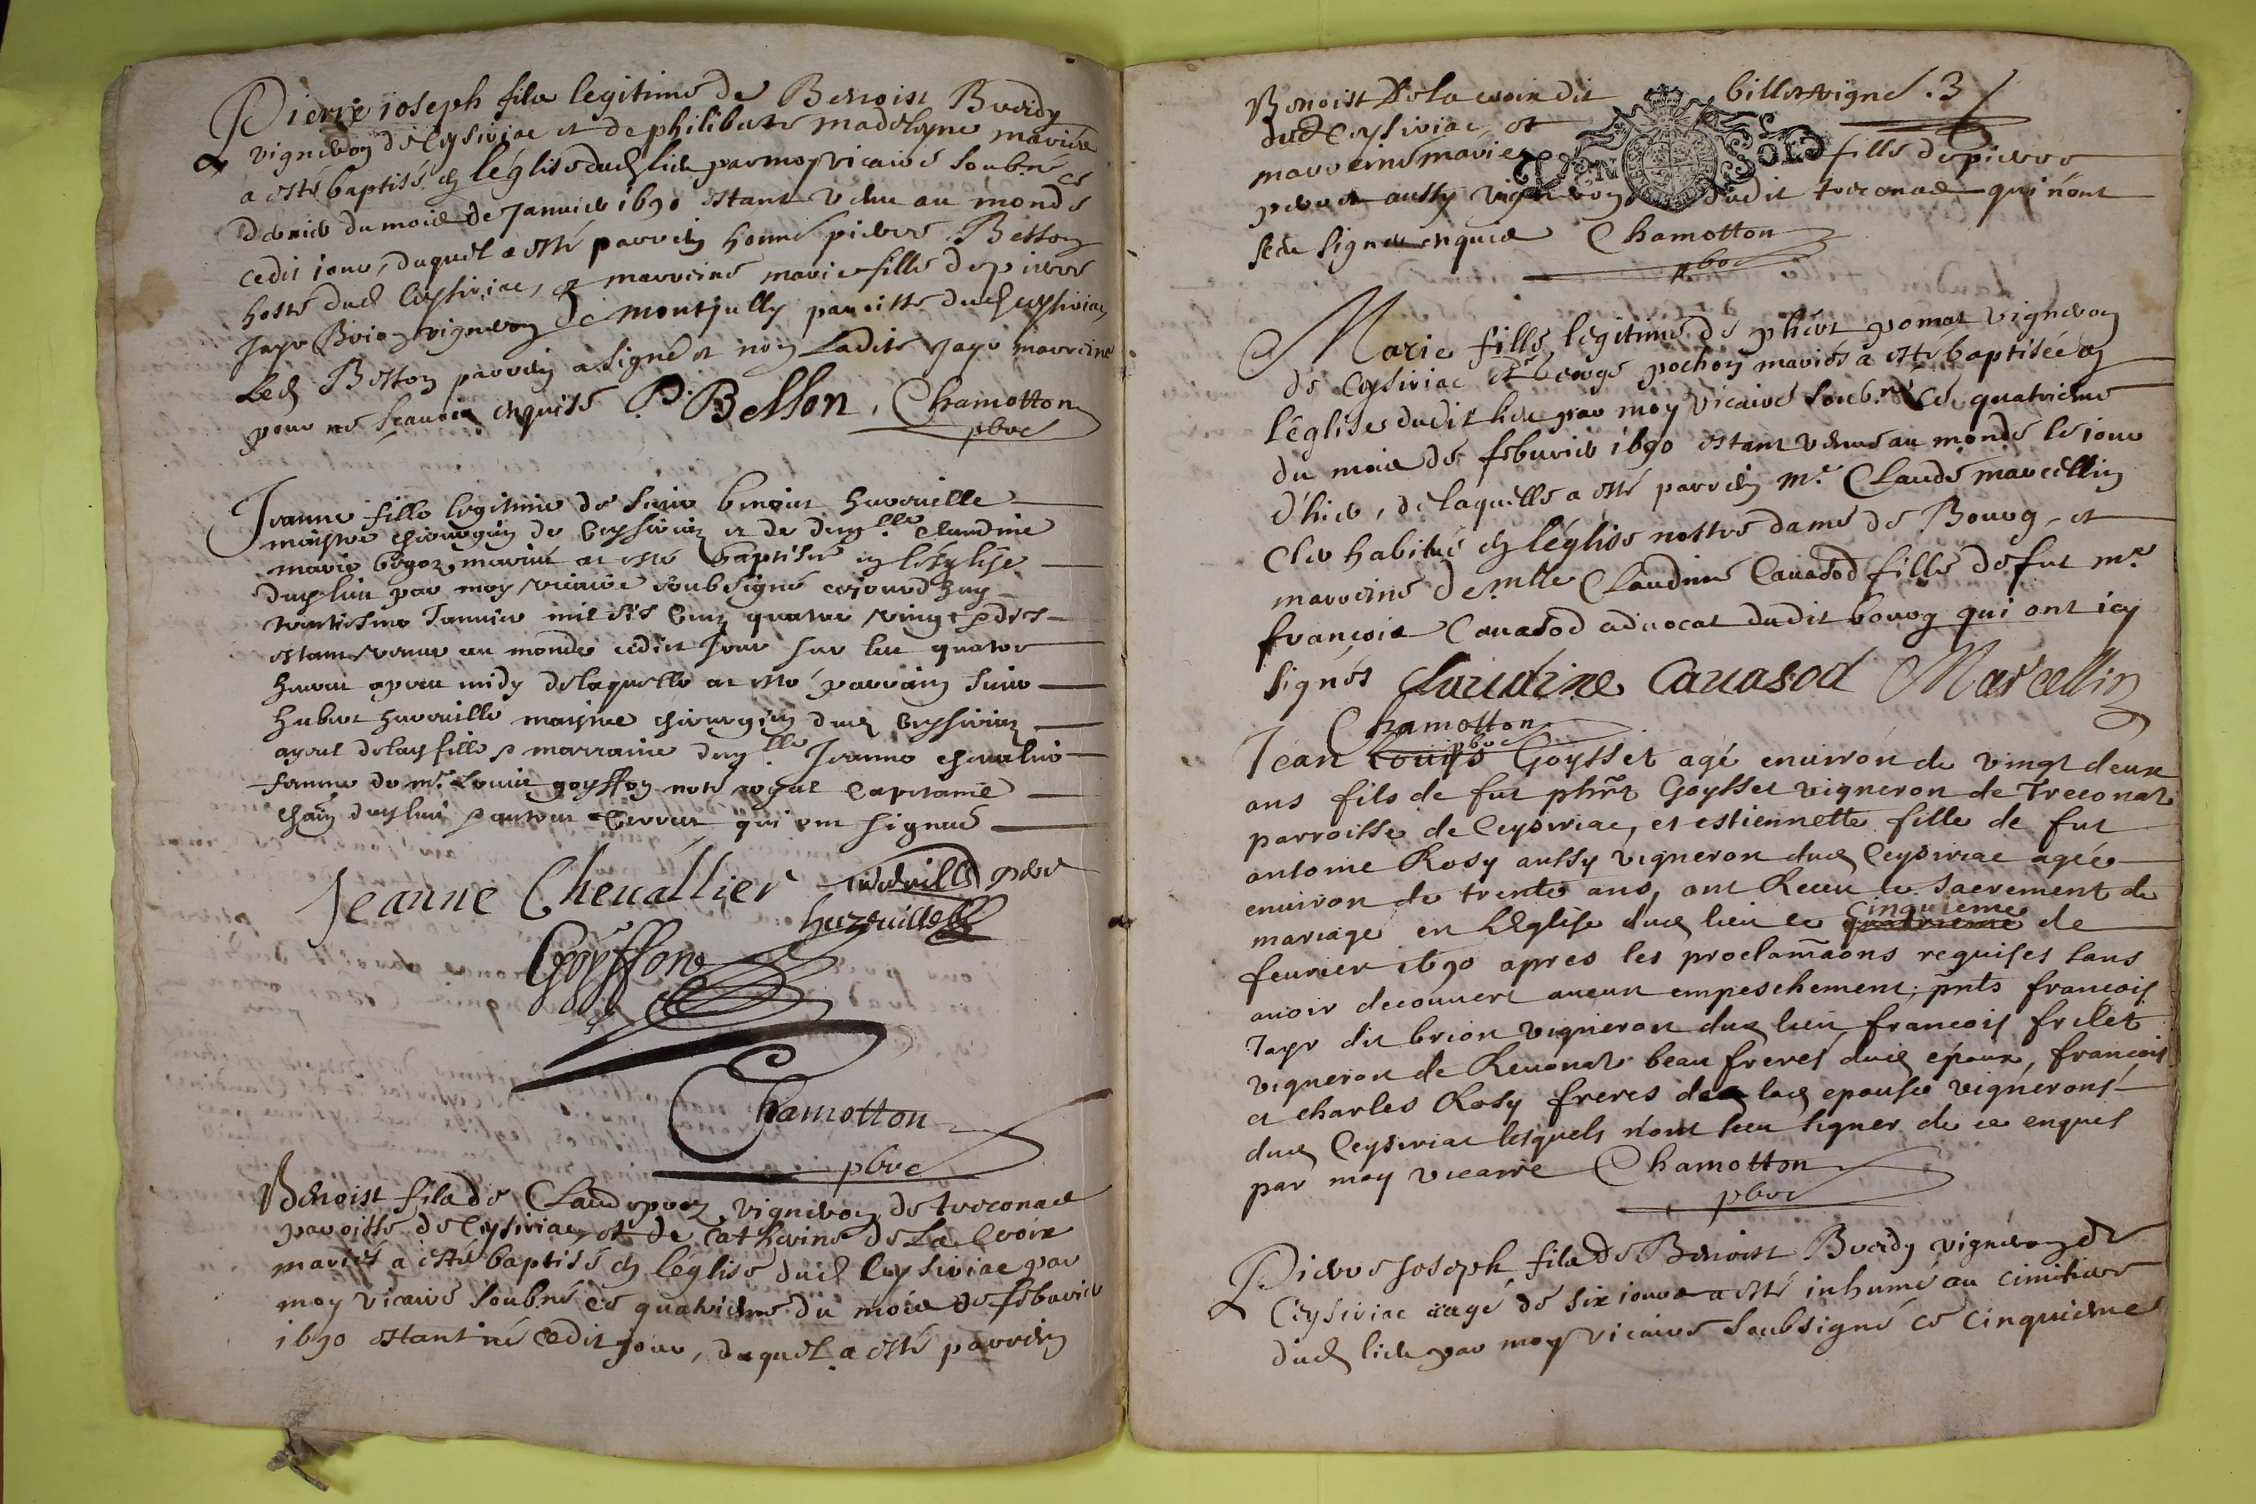 Pierre ioseph fils legitime de Benoist Buridy
vigneron de Ceysiriac et de philiberte madeleyne mariés
a esté baptisé en léglise dud lieu par moy vicaire soubné ce
dernier du mois de Januier 1690 estant venu au monde
cedit iour, duquel a esté parrein honné pierre Besson
hoste dud Ceysiriac, et marreine marie fille de pierre
Jayr Brion vigneron de montjully paroisse dud ceysiriac
Led Besson parrein a signé et non Ladite Jayr marreine
pour ne scauoir enquise P. Besson, Chamotton
pbre
Jeanne fille legitime de sieur benoist
maistre chirurgien de Ceysiria et de damlle Claudine
marie mariés at esté baptisée en lesglise
dudlieu par moy vicaire soubsigné ceiourdhuy
trentiesme Januier mil sis cenz quatre vingt & dis
estant venue au monde cedit Jour sur les quatre
heures apres midy de laquelle at esté parrain sieur
hubert maistre chirurgien dud Ceysiria
ayeul de lad fille & marraine damlle Jeanne cheualier
femme de mr. Louis goyffon notre royal Capitaine
chain dudlieu & autour Cerruet qui ont signes
Jeanne Cheuallier
Goyffon
Chamotton
pbre
Benoist fils de Claude vigneron de treconas
paroisse de Ceysiriac, et de Catherine de La Croix
mariés a esté baptisé en léglise dud Ceysiriac par
moy vicaire soubné ce quatrieme du mois de feburier
1690 estant né cedit jour, duquel a esté parrein
Benoist De la croix dit billet vigne. 3
dud Ceysiriac, et
marreine marie fille de pierre
aussy vigneron dudit treconas qui n'ont
sceu signer enquis Chamotton
pbre
Marie fille legitime de phibert pomat vigneron
de Ceysiriac et pochon mariés a esté baptisée en
l'église dudit lieu par moy vicaire soub.né ce quatrieme
du mois de feburier 1690 estant venue au monde le iour
d'hier, de laquelle a esté parrein mr. Claude marcellin
Clerc habitué en léglise nostre dame de Bourg, et
marreine de.mlle Claudine Cauasod fille de fut mr.
françois Cauasod aduocat dudit bourg qui ont icy
signés Claudine Cauasod Marcellin
Chamotton
pbre
Jean Louys Goysset agé enuiron de vingt deux
ans fils de fut phirt Goysset vigneron de Treconas
parroisse de Ceysiriac, et estiennette fille de fut
antoine Rosy aussy vigneron dud Ceysiriac agée
enuiron de trente ans, ont Receu le Sacrement de
mariage en LEglise dud lieu le quatrieme cinquieme de
feurier 1690 apres les proclamaons requises sans
auoir decouuert aucun empeschement, pnts françois
Jayr dit brion vigneron dud lieu, francois frilet
vigneron de Reuonas beau freres dud epoux, francois
et charles Rosy freres de lad epouse vignerons
dud Ceysiriac lesquels n'ont sceu signer de ce enquis
par moy vicaire Chamotton
pbre
Pierre Joseph fils de Benoist Buridy vigneron de
Ceysiriac aagé de six iours a esté inhumé au cimitiere
dud lieu par moy vicaire soubsigné ce cinquieme